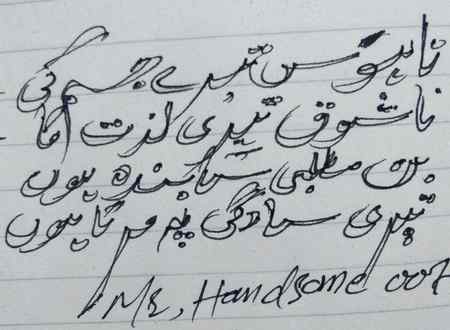 نا ہوس تیرے جسم کی
نا شوق تیری لذت کا
بن مطلبی سا بندہ ہوں
تیری سادگی پہ مرتا ہوں
Mr, Handsome 007